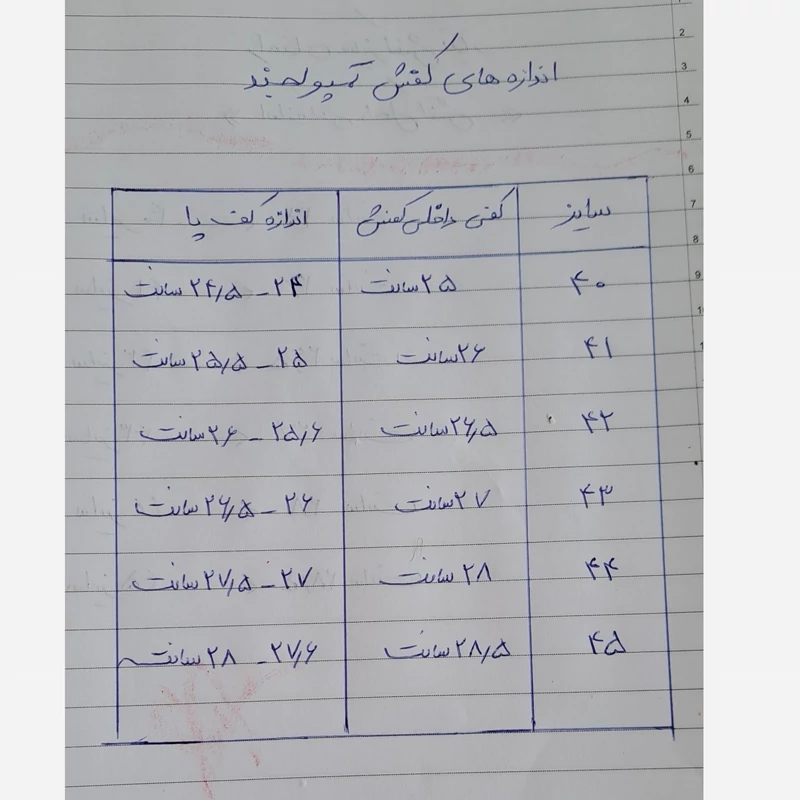 اندازه های کفش کمپولهند
سایز کفی داخلی کفش اندازه کف پا
۴۰ ۲۵ سانت ۲۴ - ۲۴٫۵ سانت
۴۱ ۲۶ سانت ۲۵ - ۲۵٫۵ سانت
۴۲ ۲۶٫۵ سانت ۲۵٫۶ - ۲۶ سانت
۴۳ ۲۷ سانت ۲۶ - ۲۶٫۵ سانت
۴۴ ۲۸ سانت ۲۷ - ۲۷٫۵ سانت
۴۵ ۲۸٫۵ سانت ۲۷٫۶ - ۲۸ سانت
2
3
4
5
6
7
8
9